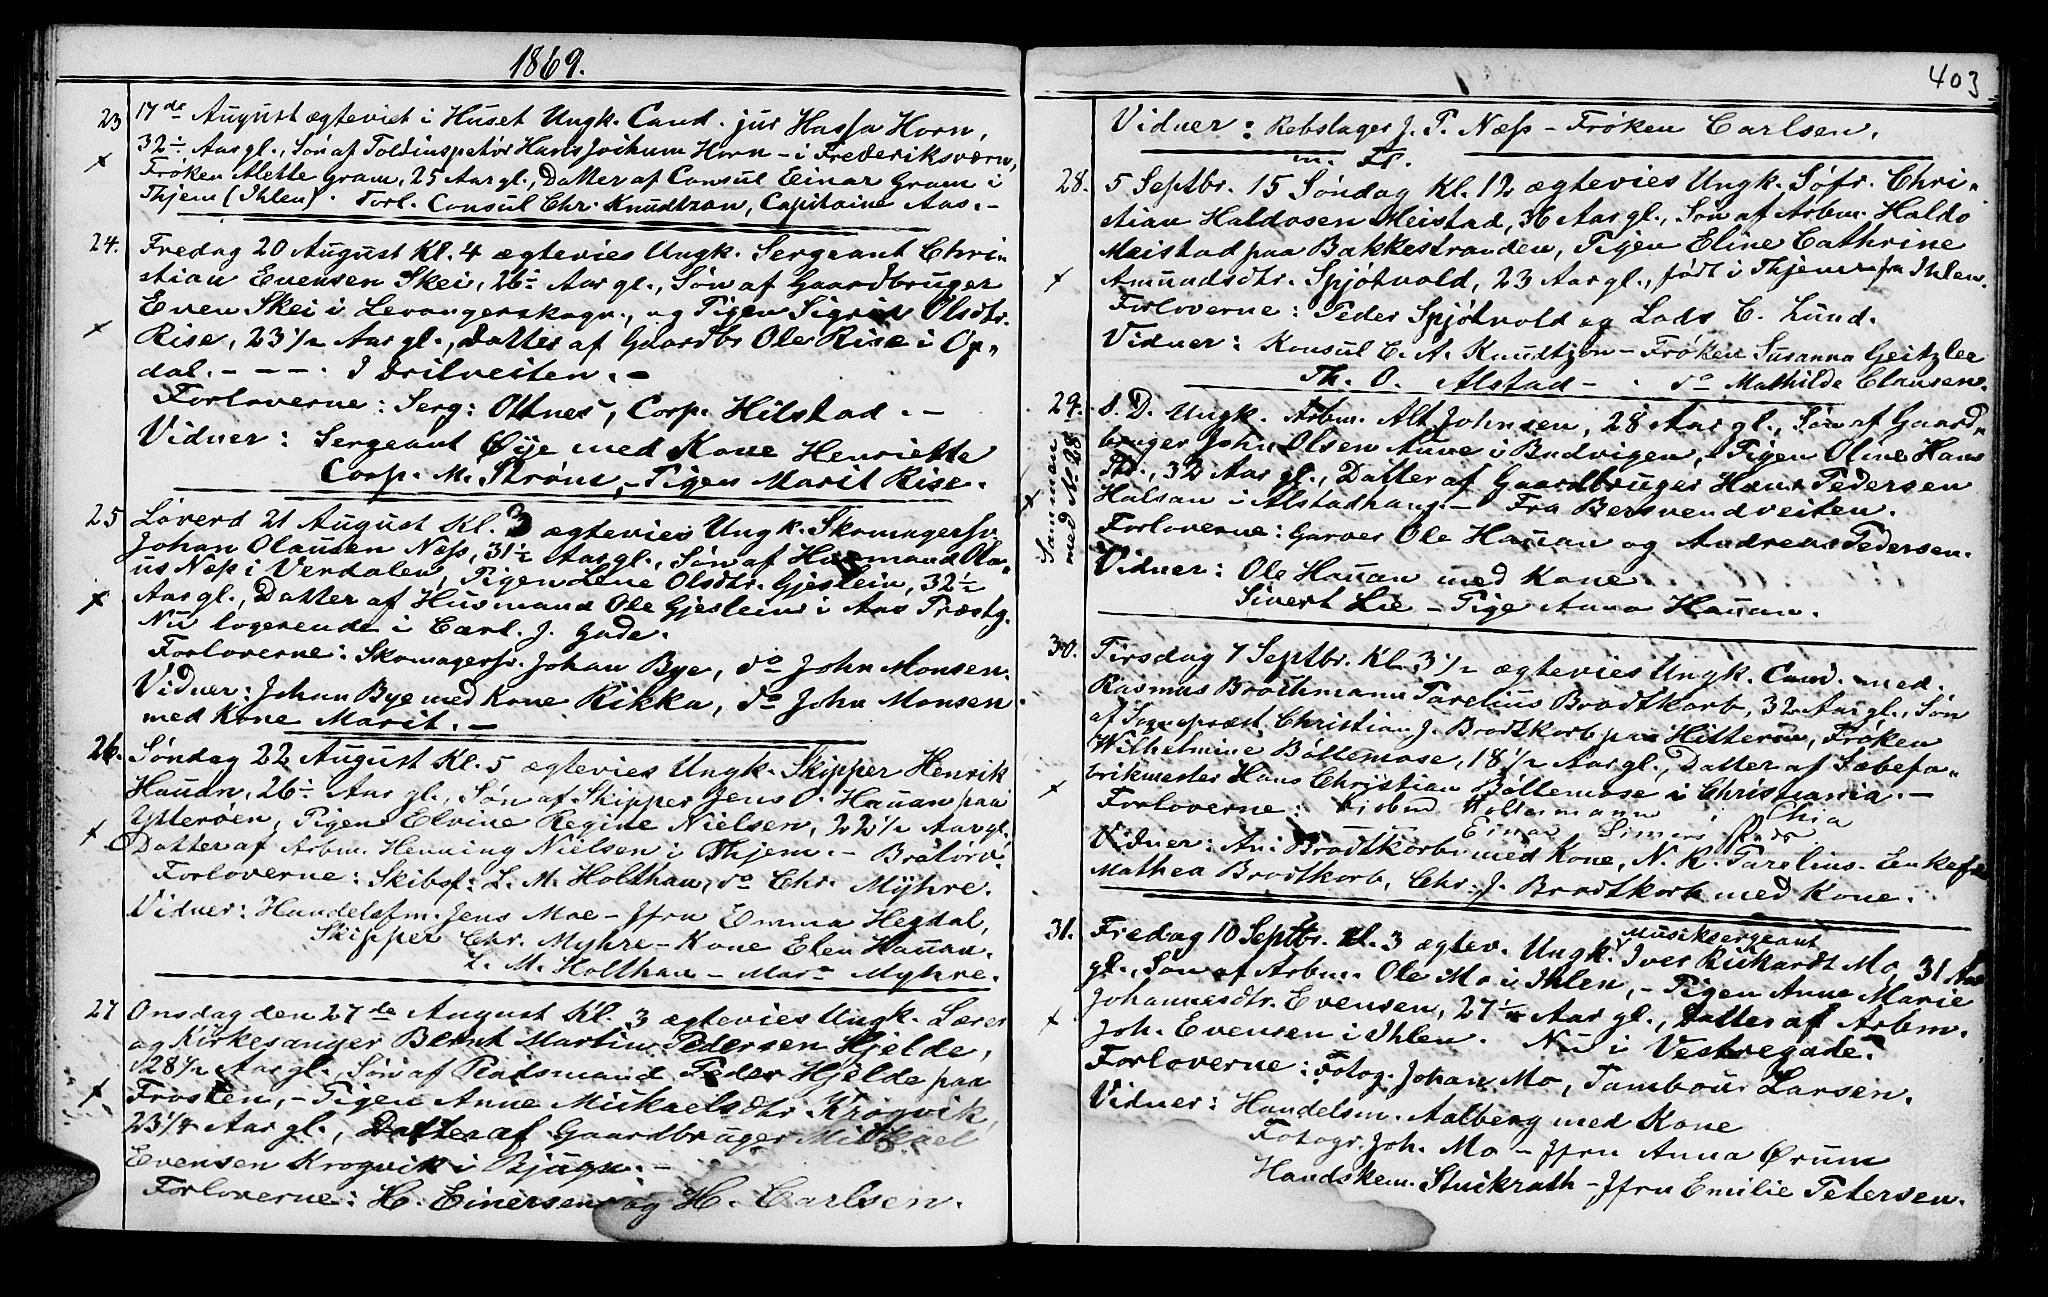 1869.
23 17de August ægteviet i Huset Ungk. Cand. jur Hassa Horn,
32½ Aar gl., Søn af Toldinspektør Hans Jochum Horn – i Frederiksværn,
Frøken Alette Gram, 25 Aar gl., Datter af Consul Einar Gram i
Thjem (Ihlen). Forl. Consul Chr. Knudtzon, Capitaine Aas. –
24. Fredag 20 August Kl. 4 ægtevies Ungk. Sergeant Chri-
stian Evensen Skei, 26½ Aar gl., Søn af Gaardbruger
Even Skei i Levangerskogn., og Pigen Sigrid Olsdtr.
Rise, 23 1/2 Aar gl., Datter af Gaardbr Ole Rise i Op-
dal. – – – . I Prilveiten. –
Forloverne: Serg: Ottnes, Corp. Hilstad. –
Vidner: Sergeant Øye med Kone Henriette
Corp. M. Strøm, – Pigen Marit Rise.
25 Løverd 21 August Kl. 3 ægtevies Ungk. Skomagersv.
Johan Olausen Næss, 31½ Aar gl., Søn af Husmand Ola-
us Næs i Verdalen, Pigen Lene Olsdtr. Gjeslein, 32½
Aar gl., Datter af Husmand Ole Gjeslein i Aas Præstg.
Nu logerende i Carl. J. Gade.
Forloverne: Skomagersv. Johan Bye, do John Monsen.
Vidner: Johan Bye med Kone Rikka, do John Monsen
med Kone Marit. –
26. Søndag 22 August Kl. 5 ægtevies Ungk. Skipper Henrik
Hauan, 26½ Aar gl., Søn af Skipper Jens O. Hauan paa
Ytterøen, Pigen Elvine Regine Nielsen, 22 1/2 Aar gl.
Datter af Arbm. Henning Nielsen i Thjem. – Bratørv.
Forloverne: Skibsf: L. M. Holthan, do Chr. Myhre.
Vidner: Handelsfm. Jens Moe – Jfru Emma Hegdal,
Skipper Chr. Myhre – Kone Elen Hauan.
L. M. Holthan – Mar: Myhre.
27 Onsdag den 27de August Kl. 3 ægtevies Ungk. Lærer
og Kirkesanger Bernt Martin Pedersen Hjelde,
28 1/2 Aar gl., Søn af Peder Hjelde paa
Frosten, – Pigen Anne Mickaelsdtr. Krogvik,
23 1/4 Aar gl., Datter af Gaardbruger Mickael
Evensen Krogvik i Bjugn. –
Forloverne: H. Einersen og H. Carlsen.
403
Vidner: Rebslager J. P. Næss – Frøken Carlsen.
m. Fl.
28. 5 Septbr. 15 Søndag Kl. 12 ægtevies Ungk. Søfr. Chri-
stian Haldosen Meistad, 36 Aar gl., Søn af Arbm. Haldo
Meistad paa Bakkestranden, Pigen Eline Cathrine
Amundsdtr. Spjøtvold, 23 Aar gl., født i Thjem fra Ihlen.
Forloverne: Peder Spjøtvold og Lads C. Lund.
Vidner: Konsul C. A. Knudtzon – Frøken Susanna Geitzler
Th. O. Alstad – . do Mathilde Clausen.
29. S. D. Ungk. Arbm. Alt Johnsen, 28 Aar gl., Søn af Gaard-
bruger John Olsen Auve i Budvigen, Pigen Oline Hans
Pd., 32 Aar gl., Datter af Gaardbruger Hans Pedersen
Halsan i Alstadhaug. – Fra Bersvendveiten.
Sammen
med No 28
Forloverne: Garver Ole Hauan og Andreas Pedersen.
Vidner: Ole Hauan med Kone.
Sivert Lie – Pige Anna Hauan.
30. Tirsdag 7 Septbr. Kl. 3 1/2 ægtevies Ungk. Cand. med.
Rasmus Brochmann Parelius Brodtkorb, 32 Aar gl., Søn
af Sognepræst Christian J. Brodtkorb paa Hitterøen, Frøken
Wilhelmine Bøllemose, 18 1/2 Aar gl., Datter af Sæbefa-
brikmester Hans Christian Bøllemose i Christiania. –
Forloverne: Holtermann i Chia
Einar
Vidner: An: Brodtkorb med Kone, N. R. Parelius. Enkefru
Mathea Brodtkorb, Chr. J. Brodtkorb med Kone.
31. Fredag 10 Septbr. Kl. 3 ægtev. Ungk. Musiksergeant Iver Rickardt Mo, 31 Aar
gl., Søn af Arbm. Ole Mo i Ihlen, – Pigen Anne Marie
Johannesdtr. Evensen, 27½ Aar gl., Datter af Arbm.
Joh. Evensen i Ihlen. Nu i Vestregade.
Forloverne: Fotog. Johan Mo, Tambour Larsen.
Vidner: Handelsm. Aalberg med Kone
Fotogr. Joh. Mo – Jfru Anna Ørum
Handskem. Stuckrath – Jfru Emilie Petersen.